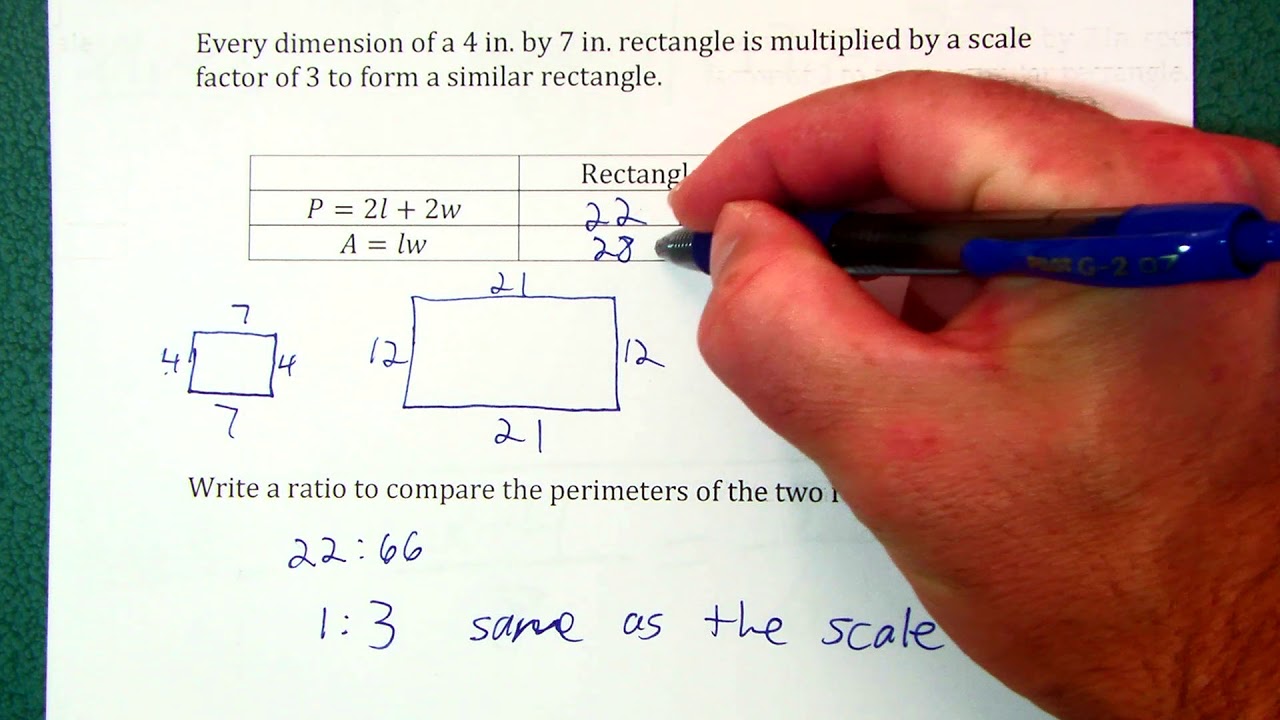 Every dimension of a 4 in. by 7 in. rectangle is multiplied by a scale
factor of 3 to form a similar rectangle.
P = 2l + 2w 22
A = lw 28
21
7
4 4 12 12
7
21
Write a ratio to compare the perimeters of the two
22:66
1:3 same as the scale
PILOT G-2 07